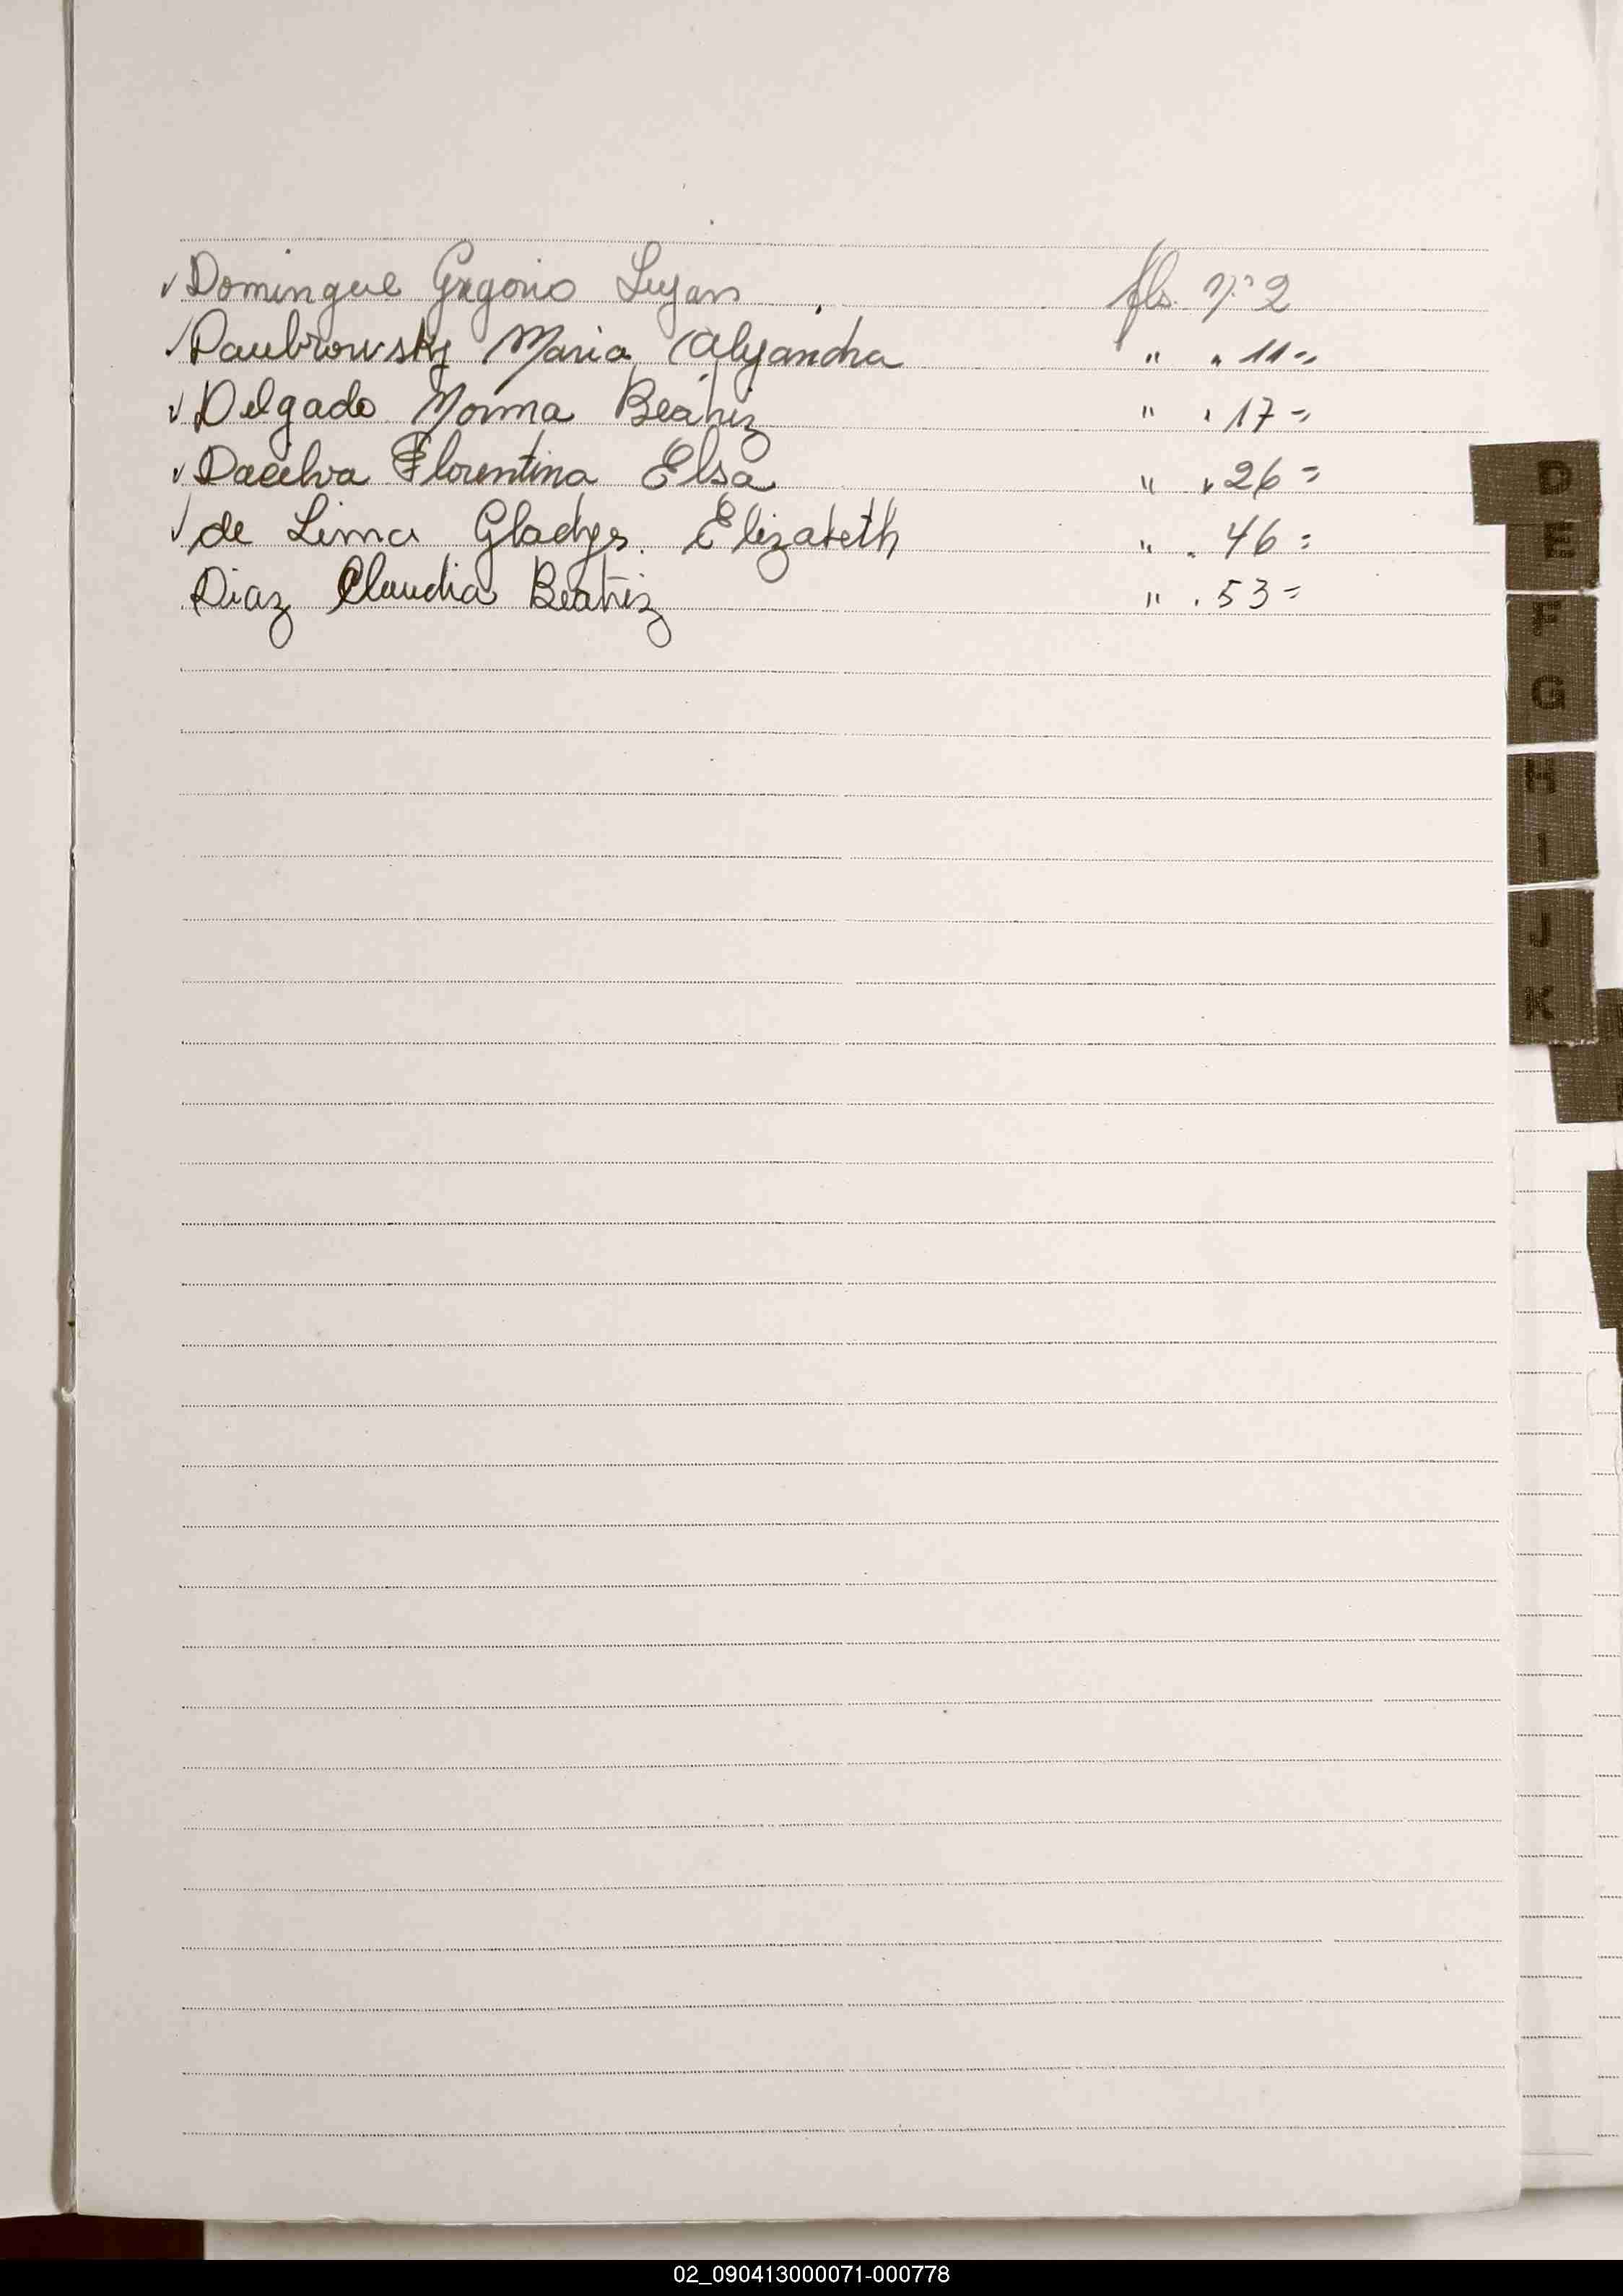 ✓ Domingue Gregorio Lujan fls. nº 2
✓ Daubrowsky Maria Alejandra " " 11 =
✓ Delgado Norma Beatriz " " 17 =
✓ Dacilva Florentina Elsa " " 26 =
✓ de Lima Gladys Elizabeth " " 46 =
Diaz Claudia Beatriz " " 53 =
D
E
F
G
H
I
J
K
02_090413000071-000778